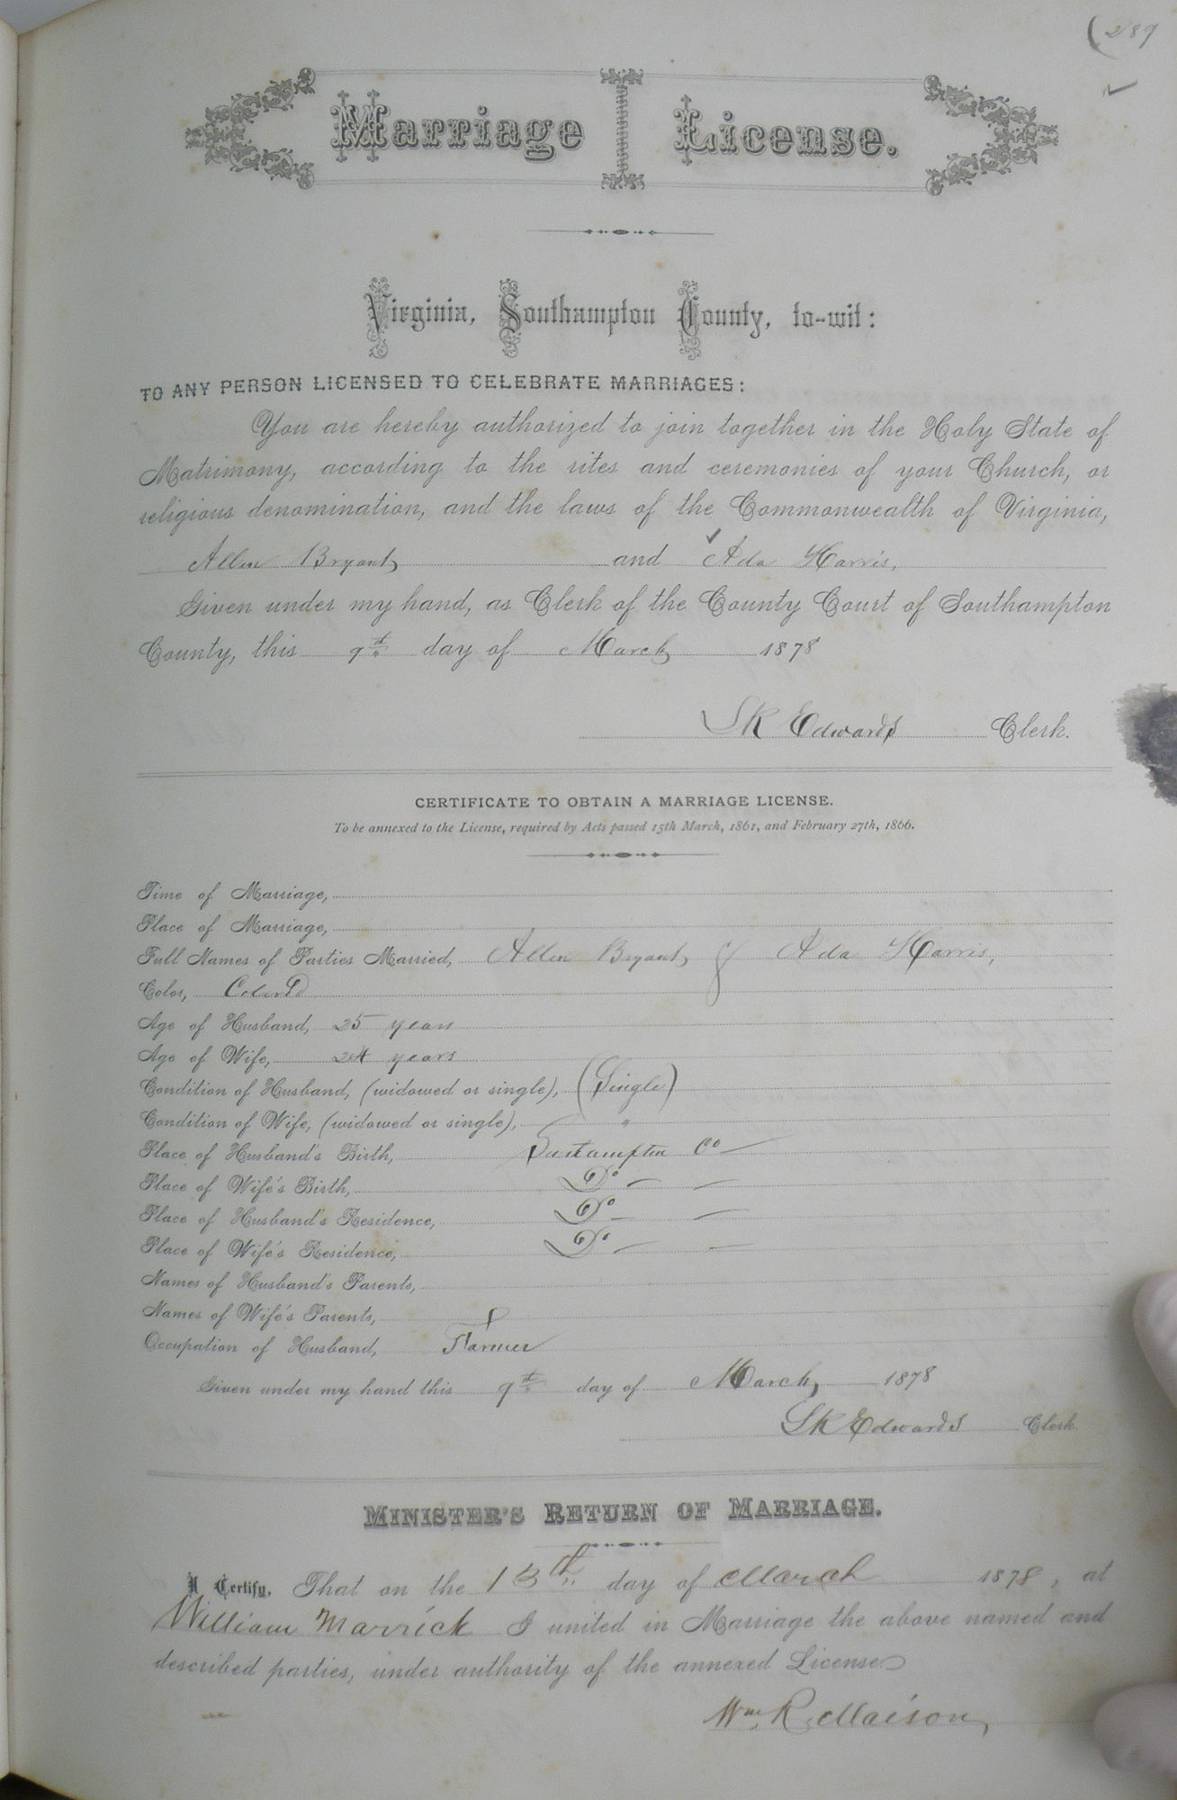 (289
✓
Marriage License.
Virginia, Southampton County, to-wit:
TO ANY PERSON LICENSED TO CELEBRATE MARRIAGES:
You are hereby authorized to join together in the Holy State of
Matrimony, according to the rites and ceremonies of your Church, or
religious denomination, and the laws of the Commonwealth of Virginia,
Allen Bryant and ✓ Ada Harris,
Given under my hand, as Clerk of the County Court of Southampton
County, this 9th day of March 1878
SK Edwards Clerk.
CERTIFICATE TO OBTAIN A MARRIAGE LICENSE.
To be annexed to the License, required by Acts passed 15th March, 1861, and February 27th, 1866.
Time of Marriage,
Place of Marriage,
Full Names of Parties Married, Allen Bryant & Ada Harris,
Color, Colord
Age of Husband, 25 years
Age of Wife, 24 years
Condition of Husband, (widowed or single), (Single)
Condition of Wife, (widowed or single), "
Place of Husband's Birth, Southampton Co —
Place of Wife's Birth, Do — —
Place of Husband's Residence, Do — —
Place of Wife's Residence, Do — —
Names of Husband's Parents,
Names of Wife's Parents,
Occupation of Husband, Farmer
Given under my hand this 9th day of March, 1878
SK Edwards Clerk.
MINISTER'S RETURN OF MARRIAGE.
I Certify, That on the 13th day of March 1878, at
William Marrick I united in Marriage the above named and
described parties, under authority of the annexed License
Wm. R. Maison,